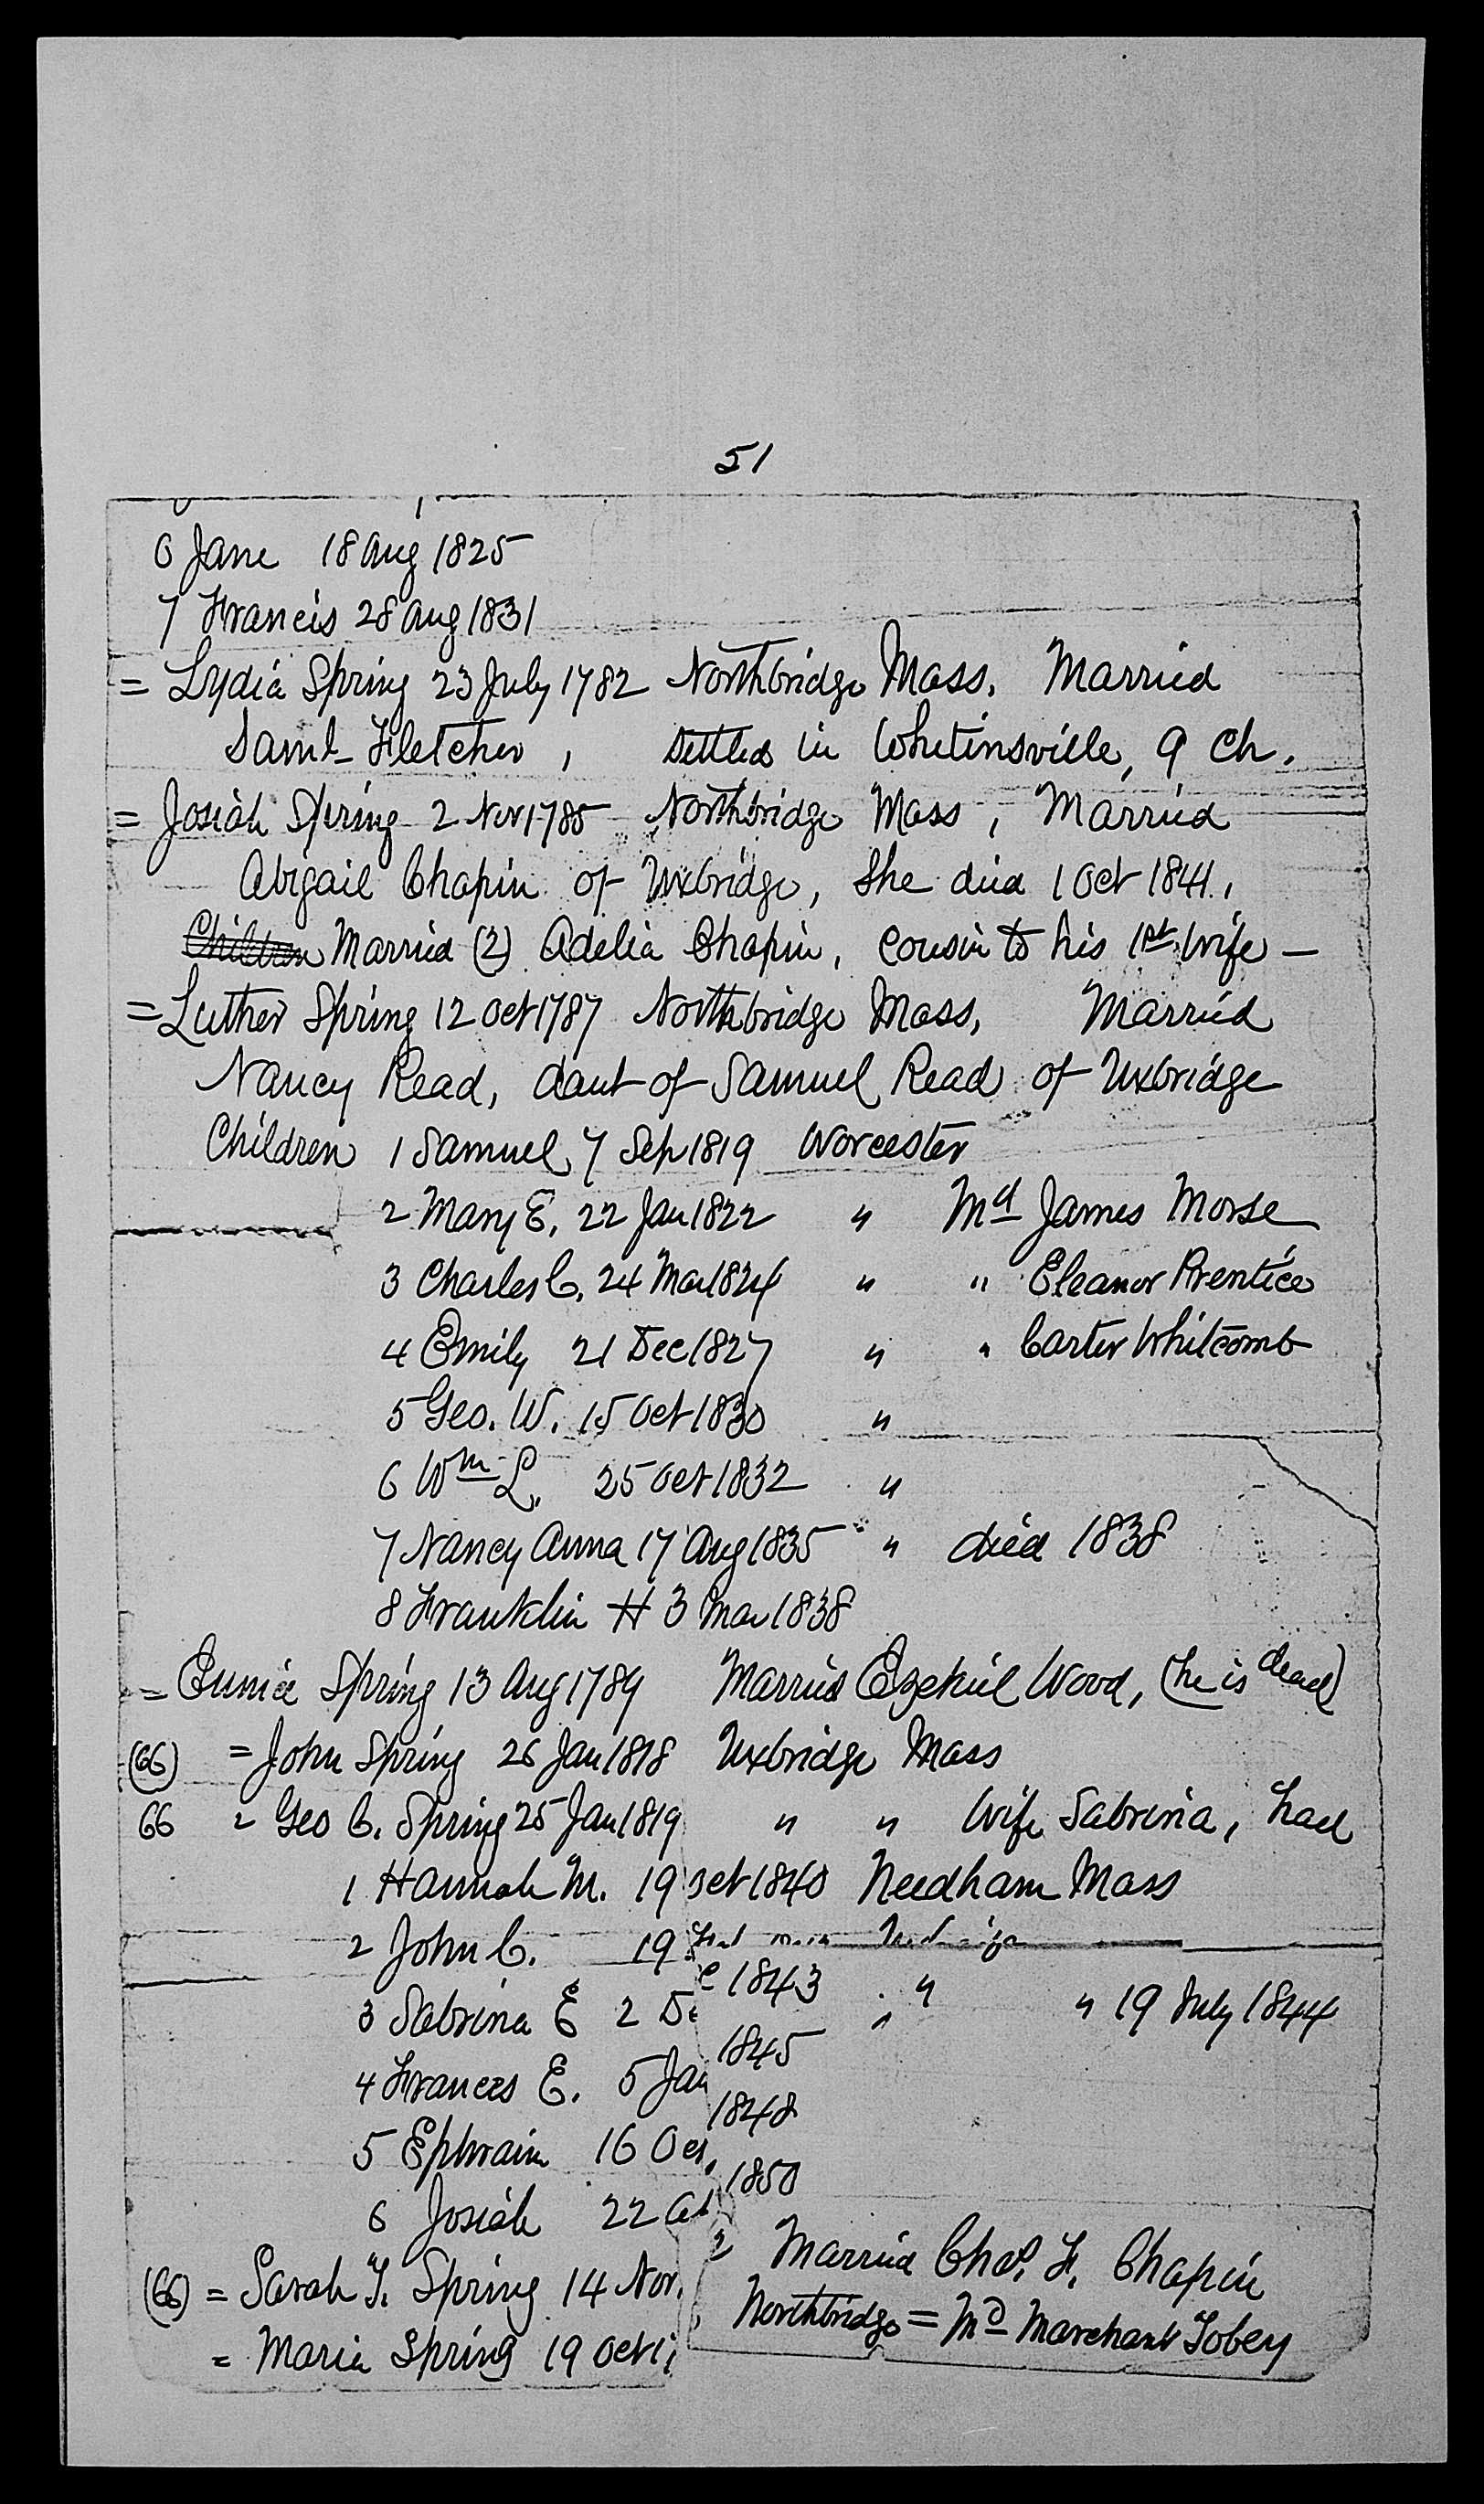 51
6 Jane 18 Aug 1825
7 Francis 28 Aug 1831
= Lydia Spring 23 July 1782 Northbridge Mass. Married
Saml Fletcher, settled in Whitinsville, 9 Ch.
= Josiah Spring 2 Nov 1785 Northbridge Mass, Married
Abigail Chapin of Uxbridge, she died 1 Oct 1841,
Children Married (2) Adelia Chapin, cousin to his 1st wife —
= Luther Spring 12 Oct 1787 Northbridge Mass, Married
Nancy Read, daut of Samuel Read of Uxbridge
Children 1 Samuel 7 Sep 1819 Worcester
2 Mary E, 22 Jan 1822 " Md James Morse
3 Charles C, 24 Mar 1824 " " Eleanor Prentice
4 Emily 21 Dec 1827 " " Carter Whitcomb
5 Geo. W. 15 Oct 1830 "
6 Wm L. 25 Oct 1832 "
7 Nancy Anna 17 Aug 1835 " died 1838
8 Franklin H 3 Mar 1838
= Eunice Spring 13 Aug 1789 Married Ezekiel Wood, (he is dead)
(66) = John Spring 26 Jan 1818 Uxbridge Mass
66 = Geo C. Spring 25 Jan 1819 " " Wife Sabrina, had
1 Hannah M. 19 Oct 1840 Needham Mass
2 John C. 19
3 Sabrina E 2 De e 1843 " " 19 July 1844
4 Frances E. 5 Jan 1845
5 Ephraim 16 Oct 1848
6 Josiah 22 1850
(66) = Sarah T. Spring 14 Nov. 2 Married Chas. F. Chapin
= Maria Spring 19 Oct Northbridge = Md Marchant Tobey